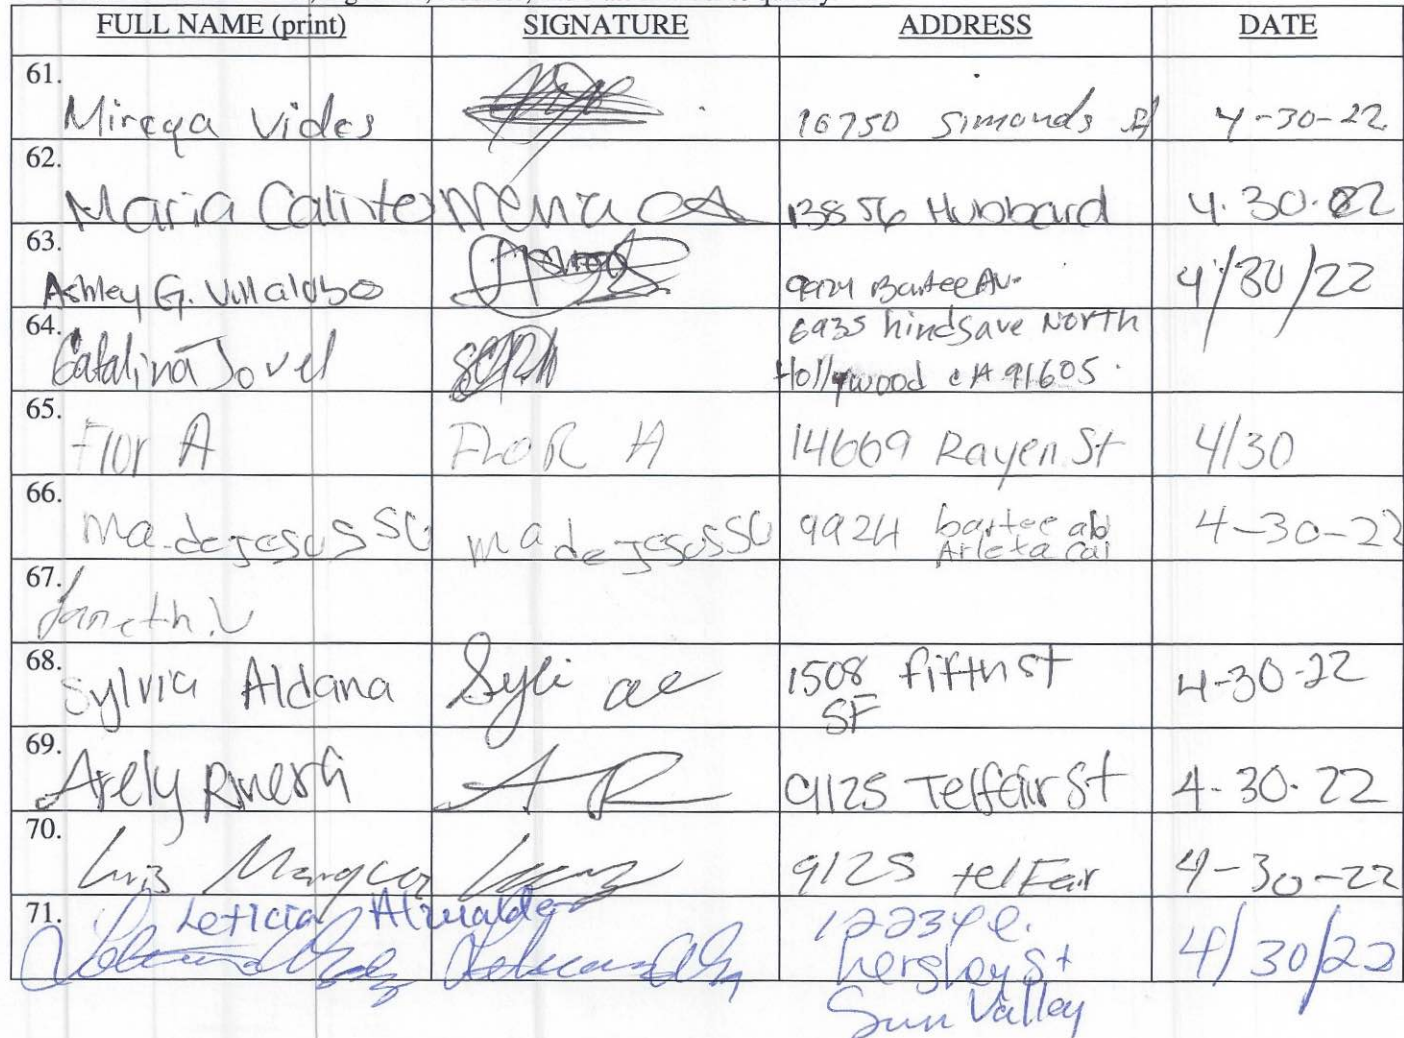 FULL NAME (print) SIGNATURE ADDRESS DATE
61. Mireya Vides 16750 Simonds St 4-30-22
62. Maria 13856 Hubbard 4.30.22
63. Ashley G. Villalobo 9924 Bartee Av. 4/30/22
64. Catalina Jovel 6935 hindsave North
Hollywood CA 91605.
65. Flor A FLOR A 14669 Rayen St 4/30
66. ma. de jesus SU ma de jesus SU 9924 bartee ab 4-30-22
Arleta cal
67. Janeth. V
68. Sylvia Aldana 1508 fifth st 4-30-22
SF
69. Arely 9125 Telfair St 4-30-22
70. Luis 9125 telFair 4-30-22
71. Leticia 12234 e. 4/30/22
St
Sun Valley